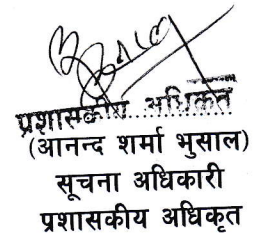 प्रशासकीय अधिकृत
(आनन्द शर्मा भुसाल)
सूचना अधिकारी
प्रशासकीय अधिकृत